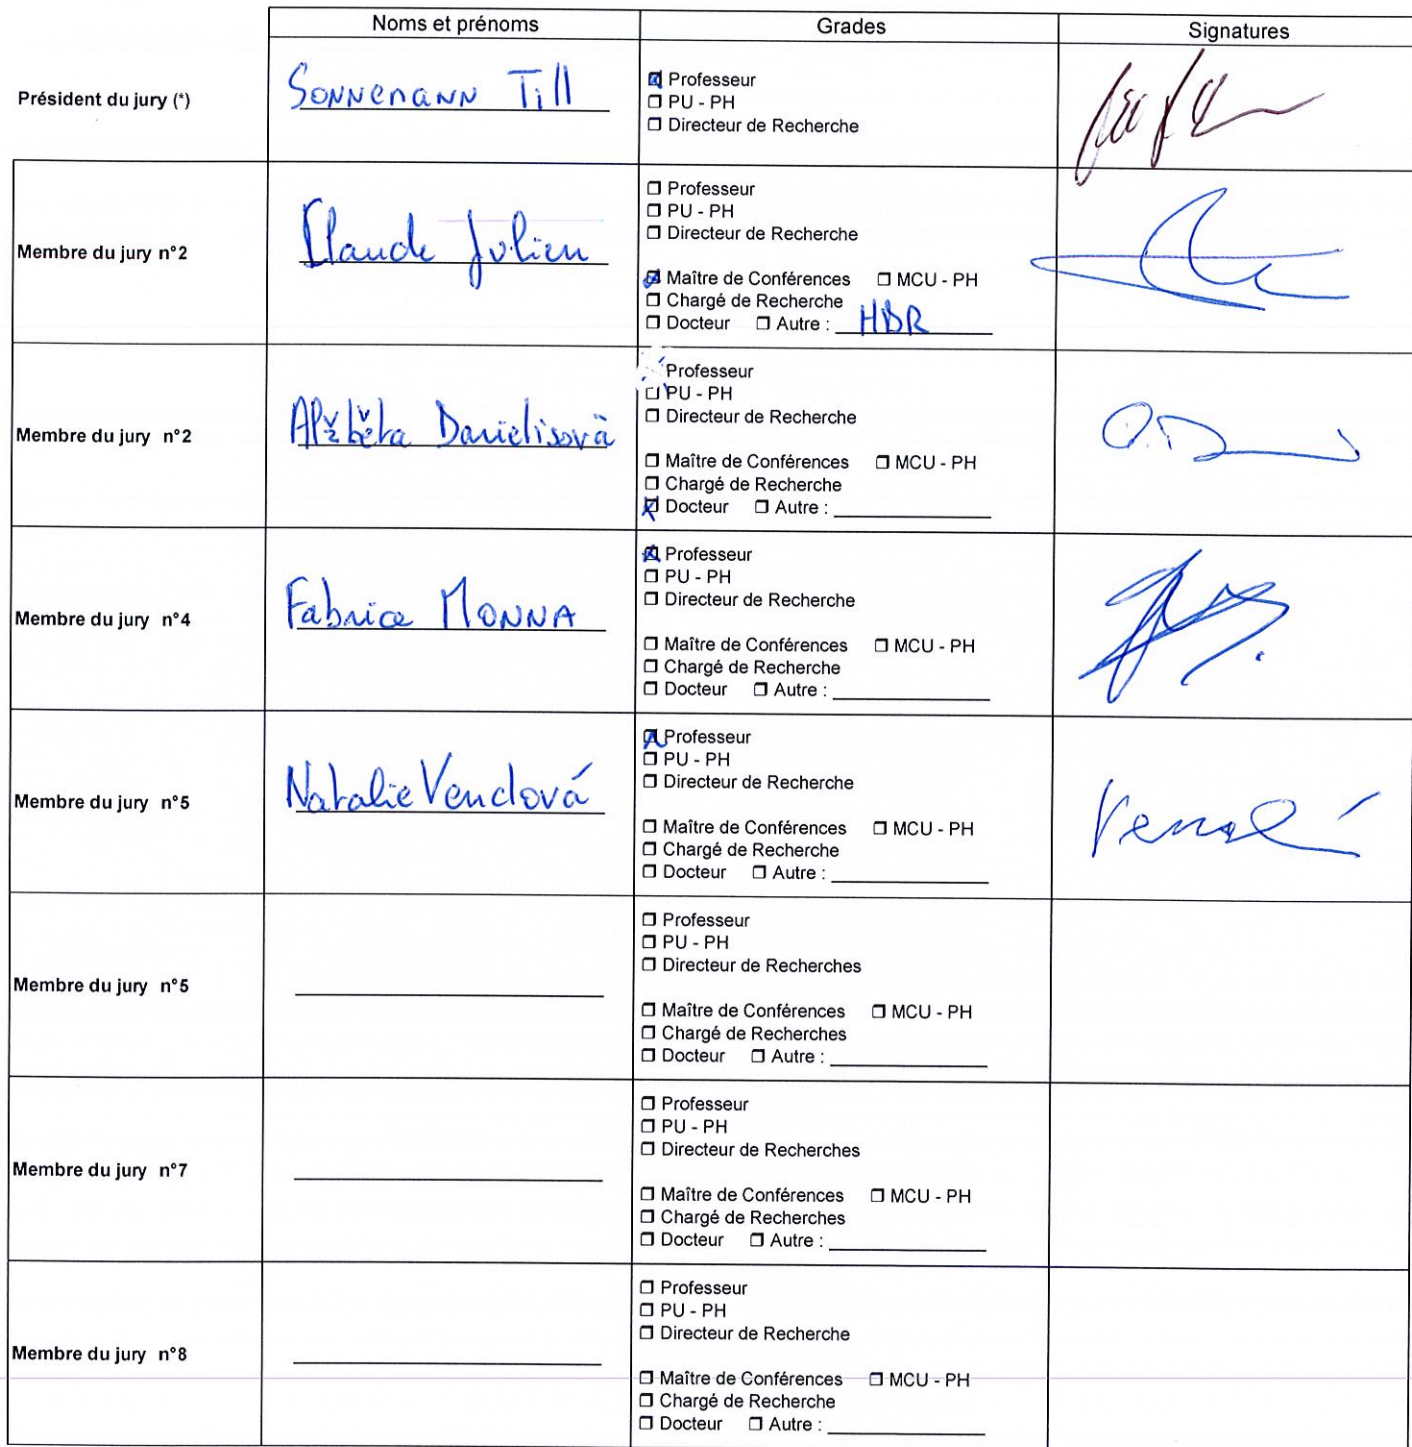 Noms et prénoms Grades Signatures
Président du jury (*) Sonnemann Till
Professeur
PU - PH
Directeur de Recherche
Membre du jury n°2 Claude Julien
Professeur
PU - PH
Directeur de Recherche
Maître de Conférences MCU - PH
Chargé de Recherche
Docteur Autre : HDR
Membre du jury n°2 Alžběta Danielisová
Professeur
PU - PH
Directeur de Recherche
Maître de Conférences MCU - PH
Chargé de Recherche
Docteur Autre :
Membre du jury n°4 Fabrice MONNA
Professeur
PU - PH
Directeur de Recherche
Maître de Conférences MCU - PH
Chargé de Recherche
Docteur Autre :
Membre du jury n°5 Natalie Venclová
Professeur
PU - PH
Directeur de Recherche
Maître de Conférences MCU - PH
Chargé de Recherche
Docteur Autre :
Membre du jury n°5
Professeur
PU - PH
Directeur de Recherches
Maître de Conférences MCU - PH
Chargé de Recherches
Docteur Autre :
Membre du jury n°7
Professeur
PU - PH
Directeur de Recherches
Maître de Conférences MCU - PH
Chargé de Recherches
Docteur Autre :
Membre du jury n°8
Professeur
PU - PH
Directeur de Recherche
Maître de Conférences MCU - PH
Chargé de Recherche
Docteur Autre :